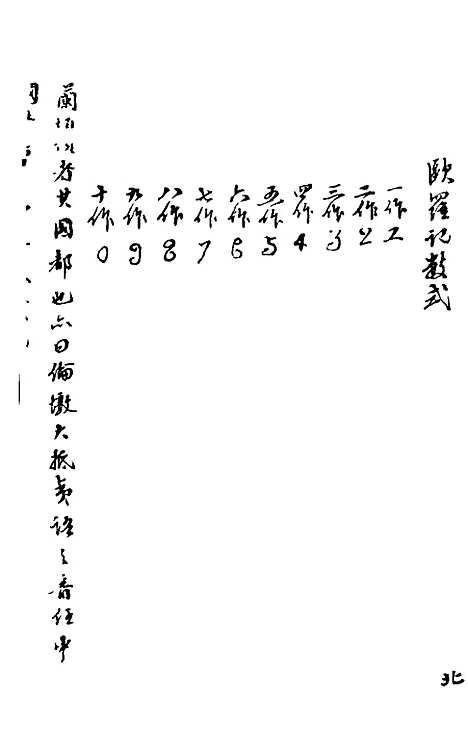 歐羅記數式
一作工
二作2
三作3
四作4
五作5
六作6
七作7
八作8
九作9
十作0
蘭 者其國都也亦曰倫墩大抵 語之音任
北